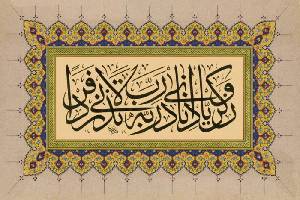 وزكريا إذ نادى ربه رب لا تذرني فردا